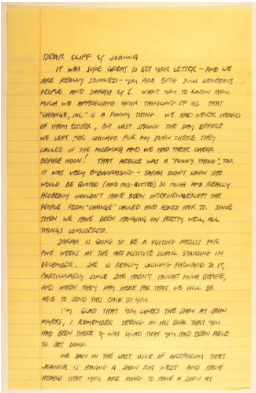 DEAR CLIFF & JOANNA
IT WAS SURE GREAT TO GET YOUR LETTER - AND WE
ARE REALLY STUNNED - YOU ARE BOTH SUCH GENEROUS
PEOPLE AND SARAH & I WANT YOU TO KNOW HOW
MUCH WE APPRECIATE YOUR THINKING OF US. THAT
"CHANGE, INC." IS A FUNNY THING. WE HAD NEVER HEARD
OF THEM EITHER, BUT LAST SPRING THE DAY BEFORE
WE LEFT FOR CHICAGO FOR MY SHOW THERE THEY
CALLED IN THE MORNING AND WE HAD THEIR CHECK
BEFORE NOON! THAT ARTICLE WAS A "FUNNY THING", TOO.
IT WAS VERY EMBARRASSING - SARAH DIDN'T KNOW SHE
WOULD BE QUOTED (AND MIS-QUOTED) SO MUCH AND REALLY
PROBABLY WOULDN'T HAVE BEEN INTERVIEWED EXCEPT THE
PEOPLE FROM "CHANGE" CALLED AND ASKED HER TO. SINCE
THEN WE HAVE BEEN MANAGING PRETTY WELL, ALL
THINGS CONSIDERED.
SARAH IS GOING TO BE A VISITING ARTIST FOR
FIVE WEEKS AT THE ART INSTITUTE SCHOOL STARTING IN
DECEMBER. SHE IS REALLY LOOKING FORWARD TO IT,
PARTICULARLY SINCE SHE HASN'T TAUGHT MUCH BEFORE,
AND WHEN THEY PAY HER FOR THAT WE WILL BE
ABLE TO SEND THIS BACK TO YOU.
I'M GLAD THAT YOU LIKED THE SHOW AT
MYERS, I REMEMBER SEEING IN HIS BOOK THAT YOU
HAD BEEN THERE & WAS GLAD THAT YOU HAD BEEN ABLE
TO GET DOWN.
WE SAW IN THE LAST ISSUE OF ARTFORUM THAT
JOANNA IS HAVING A SHOW OUT WEST AND HAVE
HEARD THAT YOU ARE GOING TO HAVE A SHOW AT